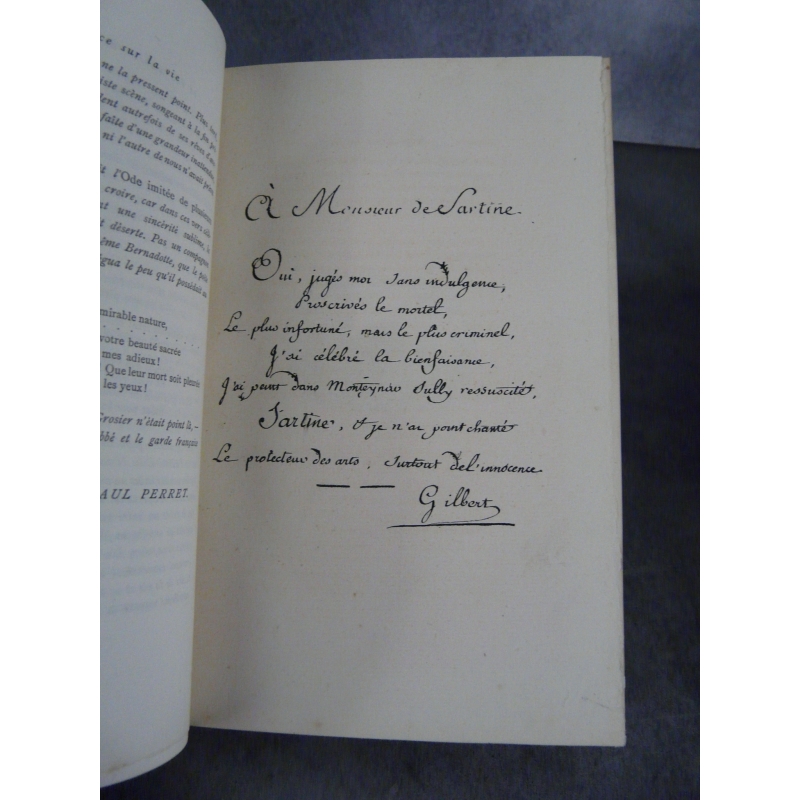 ce sur la vie
ne la pressent point. Plus
iste scène, songeant à la
dent autrefois de ses rêves
faîte d'une grandeur
ni l'autre de nous n'avait
t l'Ode imitée de plusieurs
croire, car dans ces vers
nt une sincérité sublime,
t déserte. Pas un compagnon
ême Bernadotte, que le poète
égua le peu qu'il possédait au
mirable nature,
votre beauté sacrée
mes adieux!
Que leur mort soit pleurée
les yeux!
Crosier n'était point là, —
bbé et le garde française
AUL PERRET.
À Monsieur de Sartine.
Oui, jugés moi sans indulgence,
Proscrivés le mortel,
Le plus infortuné, mais le plus criminel,
J'ai célébré la bienfaisance,
J'ai peint dans Monteynav Sully ressuscité,
Sartine, et je n'ai point chanté
Le protecteur des arts, surtout de l'innocence
Gilbert